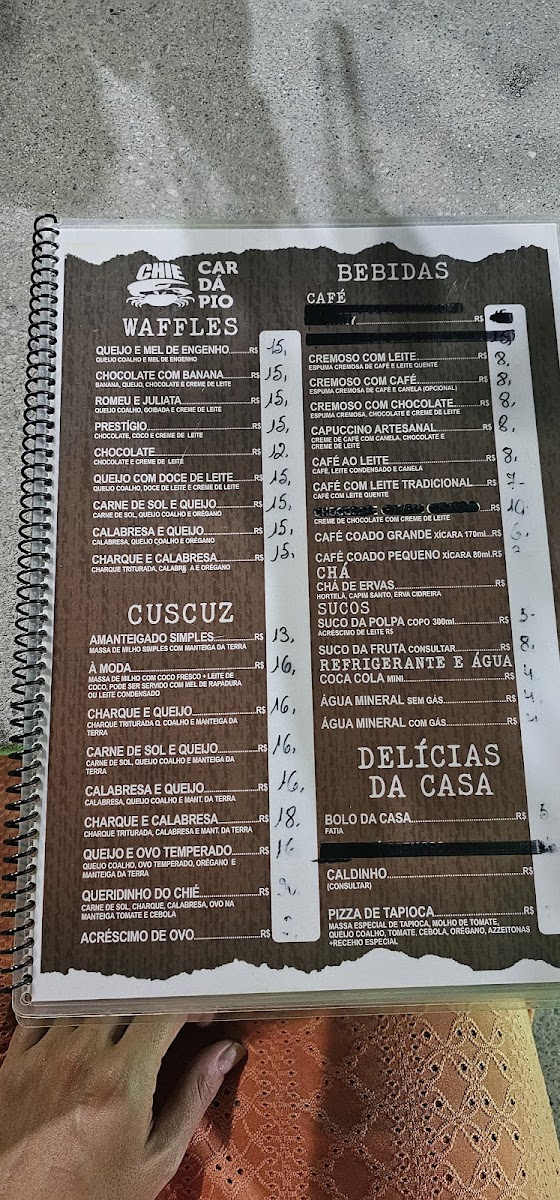 CHIÉ
CAR
DÁ
PIO
WAFFLES
QUEIJO E MEL DE ENGENHO........R$ 15,
QUEIJO COALHO E MEL DE ENGENHO
CHOCOLATE COM BANANA........R$ 15,
BANANA, QUEIJO, CHOCOLATE E CREME DE LEITE
ROMEU E JULIATA........R$ 15,
QUEIJO COALHO, GOIBADA E CREME DE LEITE
PRESTÍGIO........R$ 15,
CHOCOLATE, COCO E CREME DE LEITE
CHOCOLATE........R$ 12,
CHOCOLATE E CREME DE LEITE
QUEIJO COM DOCE DE LEITE........R$ 15,
QUEIJO COALHO, DOCE DE LEITE E CREME DE LEITE
CARNE DE SOL E QUEIJO........R$ 15,
CARNE DE SOL, QUEIJO COALHO E ORÉGANO
CALABRESA E QUEIJO........R$ 15,
CALABRESA, QUEIJO COALHO E OREGANO
CHARQUE E CALABRESA........R$ 15,
CHARQUE TRITURADA, A E ORÉGANO
CUSCUZ
AMANTEIGADO SIMPLES........R$ 13,
MASSA DE MILHO SIMPLES COM MANTEIGA DA TERRA
À MODA........R$ 16,
MASSA DE MILHO COM COCO FRESCO + LEITE DE
COCO, PODE SER SERVIDO COM MEL DE RAPADURA
OU LEITE CONDENSADO
CHARQUE E QUEIJO........R$ 16,
CHARQUE TRITURADA Q. COALHO E MANTEIGA DA
TERRA
CARNE DE SOL E QUEIJO........R$ 16,
CARNE DE SOL, QUEIJO COALHO E MANTEIGA DA
TERRA
CALABRESA E QUEIJO........R$ 16,
CALABRESA, QUEIJO COALHO E MANT. DA TERRA
CHARQUE E CALABRESA........R$ 18,
CHARQUE TRITURADA, CALABRESA E MANT. DA TERRA
QUEIJO E OVO TEMPERADO........R$ 16
QUEIJO COALHO, OVO TEMPERADO, ORÉGANO E
MANTEIGA DA TERRA
QUERIDINHO DO CHIÉ........R$
CARNE DE SOL, CHARQUE, CALABRESA, OVO NA
MANTEIGA TOMATE E CEBOLA
ACRÉSCIMO DE OVO........R$
BEBIDAS
CAFÉ
R$
CREMOSO COM LEITE........R$ 8,
ESPUMA CREMOSA DE CAFÉ E LEITE QUENTE
CREMOSO COM CAFÉ........R$ 8,
ESPUMA CREMOSA DE CAFÉ E CANELA (OPCIONAL)
CREMOSO COM CHOCOLATE........R$ 8,
ESPUMA CREMOSA, CHOCOLATE E CREME DE LEITE
CAPUCCINO ARTESANAL........R$ 8,
CREME DE CAFÉ COM CANELA, CHOCOLATE E
CREME DE LEITE
CAFÉ AO LEITE........R$ 8,
CAFÉ, LEITE CONDENSADO E CANELA
CAFÉ COM LEITE TRADICIONAL........R$ 7-
CAFÉ COM LEITE QUENTE
R$ 10,
CREME DE CHOCOLATE COM CREME DE LEITE
CAFÉ COADO GRANDE XÍCARA 170ml...R$ 6,
CAFÉ COADO PEQUENO XÍCARA 80ml.R$
CHÁ
CHÁ DE ERVAS........R$
HORTELÃ, CAPIM SANTO, ERVA CIDREIRA
SUCOS
SUCO DA POLPA COPO 300ml........R$ 5-
ACRÉSCIMO DE LEITE R$
SUCO DA FRUTA CONSULTAR........R$ 8,
REFRIGERANTE E ÁGUA
COCA COLA MINI........R$ 4
ÁGUA MINERAL SEM GÁS........R$ 4
ÁGUA MINERAL COM GÁS........R$ 4
DELÍCIAS
DA CASA
BOLO DA CASA........R$
FATIA
CALDINHO........R$
(CONSULTAR)
PIZZA DE TAPIOCA........R$
MASSA ESPECIAL DE TAPIOCA, MOLHO DE TOMATE,
QUEIJO COALHO, TOMATE, CEBOLA, ORÉGANO, AZZEITONAS
+RECHEIO ESPECIAL